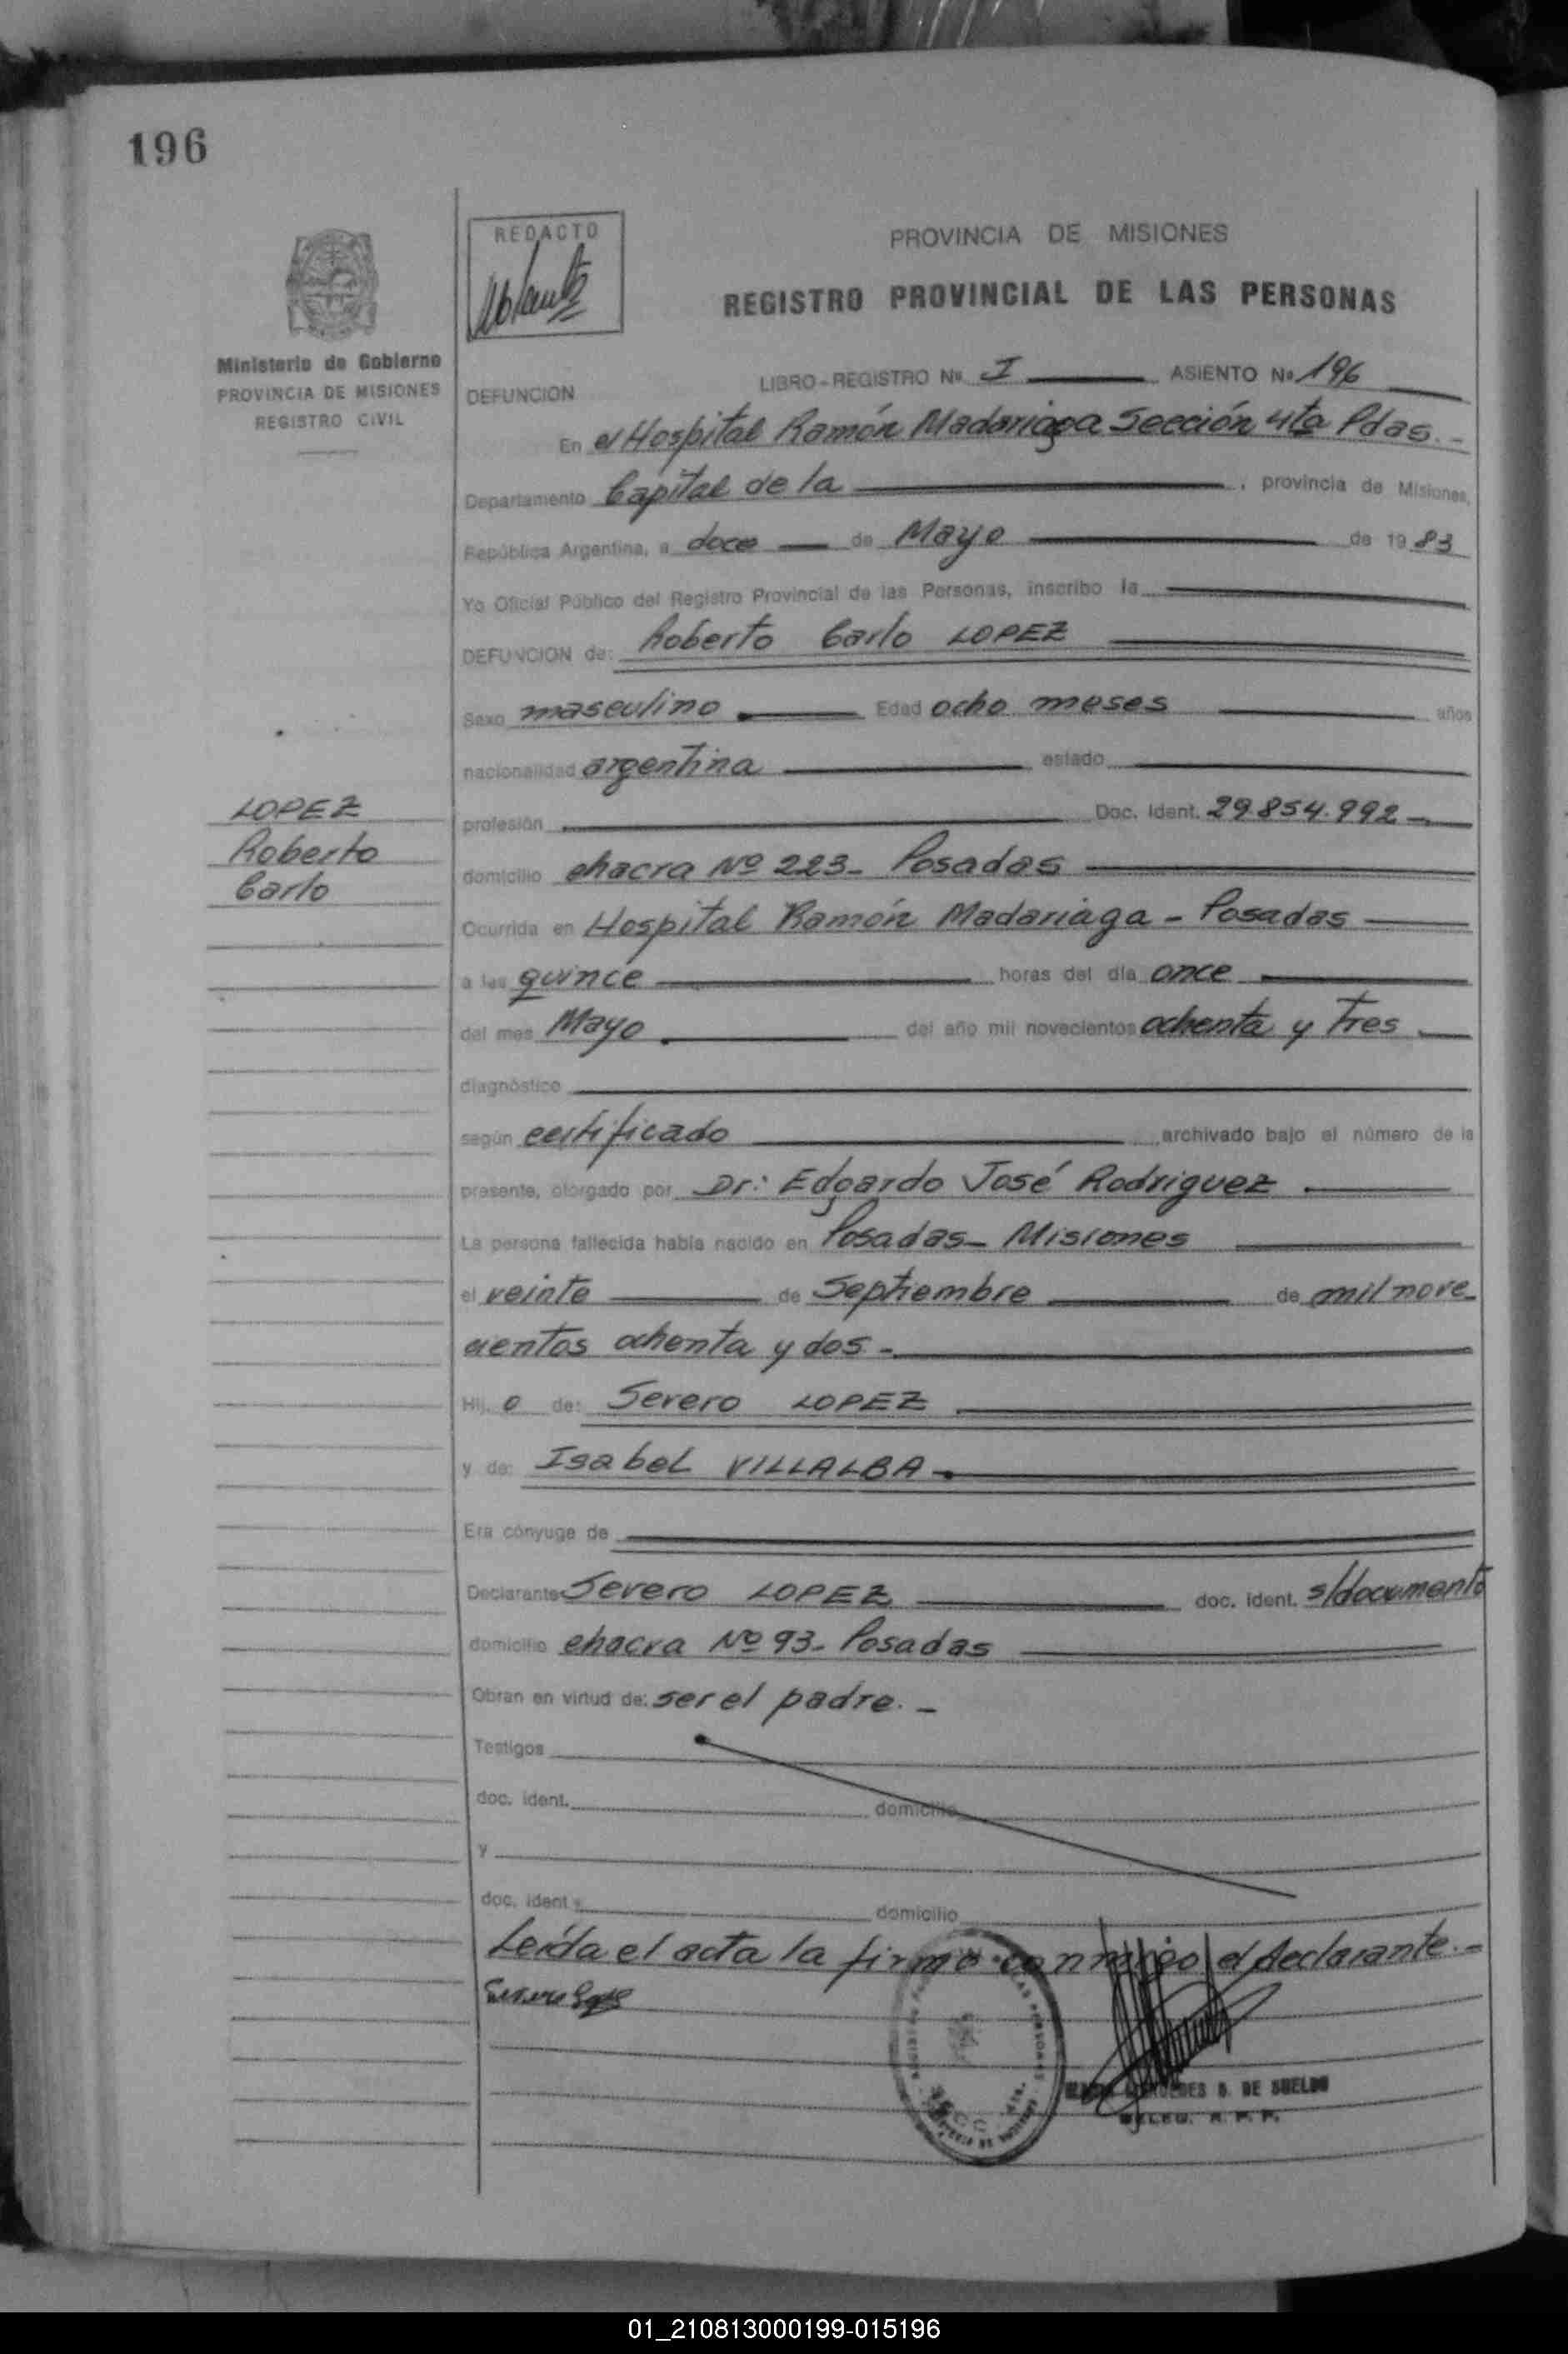 196
REDACTO
PROVINCIA DE MISIONES
REGISTRO PROVINCIAL DE LAS PERSONAS
Ministerio de Gobierno
PROVINCIA DE MISIONES
REGISTRO CIVIL
DEFUNCION
LIBRO-REGISTRO Nº I ASIENTO Nº 196
En el Hospital Ramón Madariaga Sección 4ta Pdas.-
Departamento Capital de la , provincia de Misiones,
República Argentina, a doce de Mayo de 1983
Yo Oficial Público del Registro Provincial de las Personas, inscribo la
DEFUNCION de: Roberto Carlo LOPEZ
Sexo masculino Edad ocho meses años
nacionalidad argentina estado
LOPEZ
Roberto
Carlo
profesión Doc. Ident. 29.854.992-
domicilio chacra Nº 223- Posadas
Ocurrida en Hospital Ramón Madariaga - Posadas
a las quince horas del día once
del mes Mayo del año mil novecientos ochenta y tres
diagnóstico
según certificado archivado bajo el número de la
presente, otorgado por Dr: Edgardo José Rodriguez
La persona fallecida había nacido en Posadas- Misiones
el veinte de Septiembre de mil nove-
cientos ochenta y dos-
Hij o de: Severo LOPEZ
y de: Isabel VILLALBA-
Era cónyuge de
Declarante Severo LOPEZ doc. ident. s/documento
domicilio chacra Nº 93- Posadas
Obran en virtud de: ser el padre.-
Testigos
doc. ident. domicilio
y
doc. ident. domicilio
Leída el acta la firmó conmigo el declarante.-
DE SUELDO
R. P. P.
01_210813000199-015196